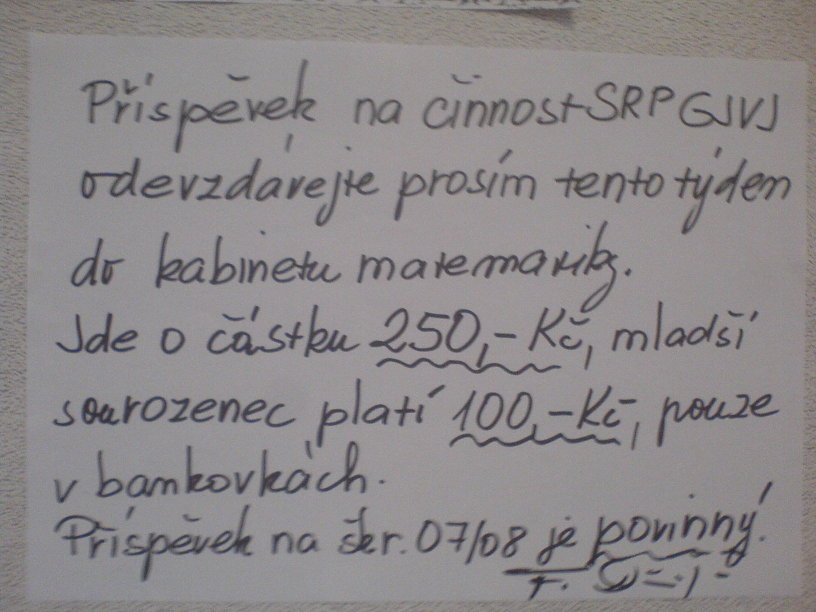 Příspěvek na činnost SRPGJVJ
odevzdávejte prosím tento týden
do kabinetu matematiky.
Jde o částku 250,- Kč, mladší
sourozenec platí 100,-Kč, pouze
v bankovkách.
Příspěvek na škr. 07/08 je povinný!